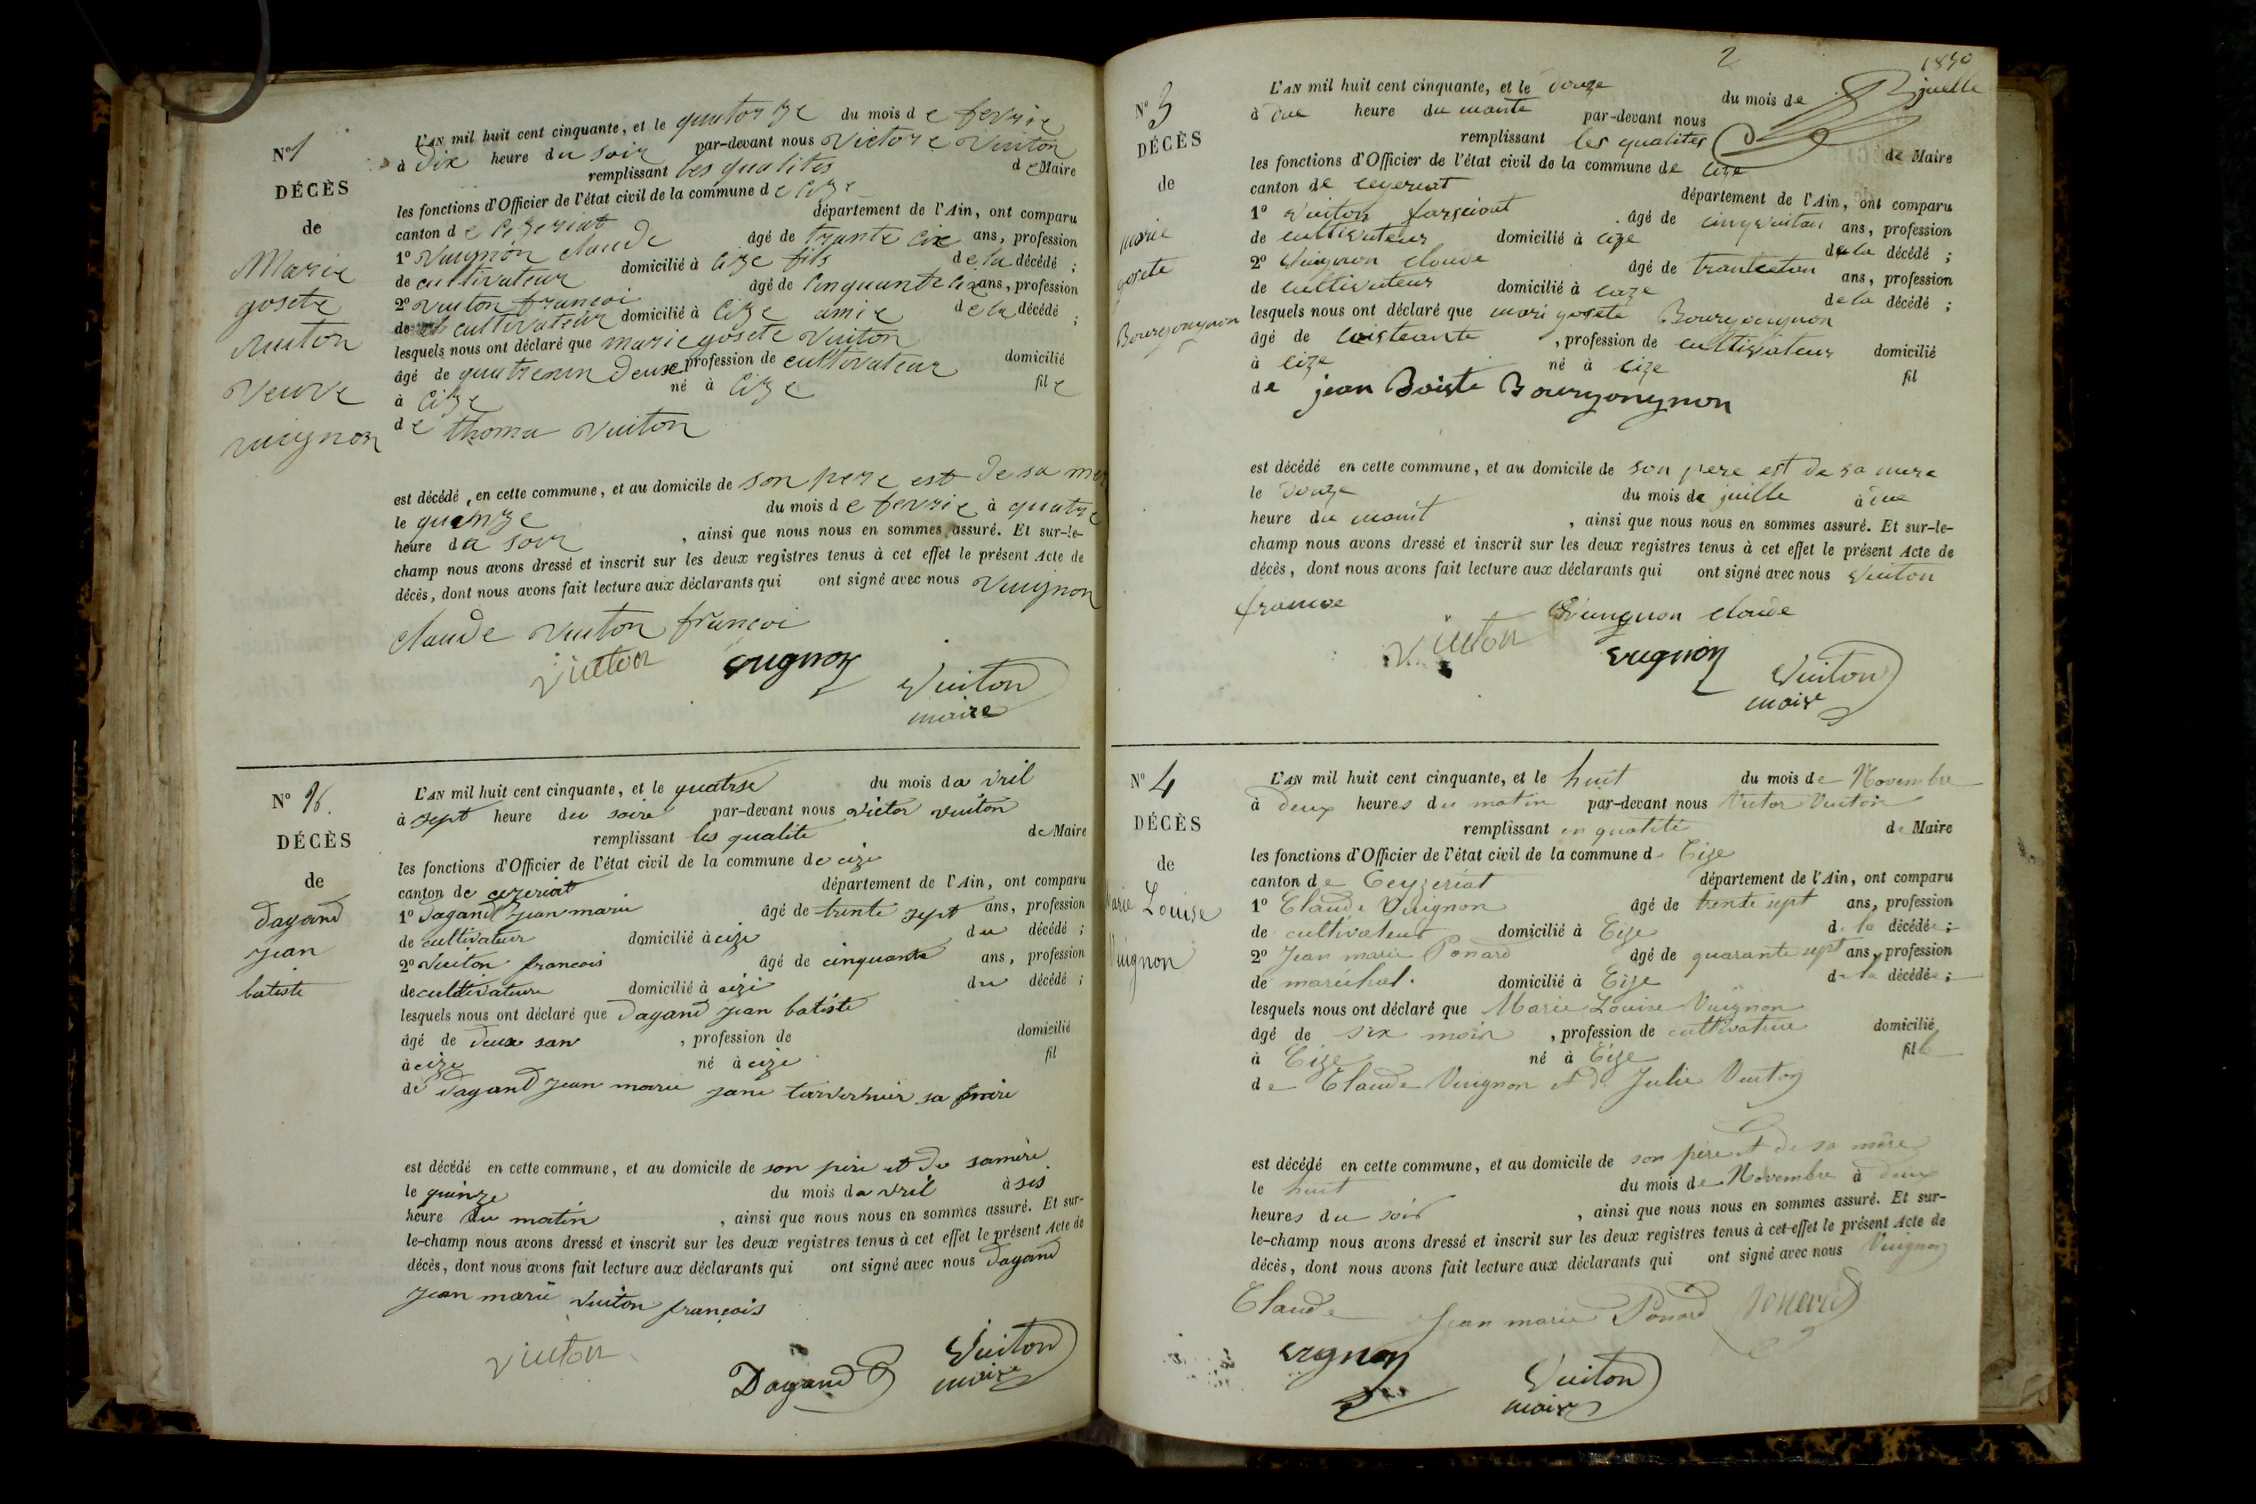 N° 1
DÉCÈS
de
Marie
gosete
vuiton
veuve
vuignon
L'AN mil huit cent cinquante, et le quatorze du mois de fevrie
à dix heure du soir par-devant nous victore vuiton
remplissant les qualites de Maire
les fonctions d'Officier de l'état civil de la commune de Cize
canton de Cezeriat département de l'Ain, ont comparu
1° vuignon claude âgé de trante cix ans, profession
de cultivateur domicilié à Cize fils de la décédé ;
2° vuiton francoi âgé de Cinquante Cix ans, profession
de cultivateur domicilié à Cize amie de la décédé ;
lesquels nous ont déclaré que marie gosete vuiton
âgé de quatrenin deuse profession de cultivateur domicilié
à Cize né à Cize fil e
de thoma vuiton
est décédé, en cette commune, et au domicile de son pere est de sa mer
le quinze du mois de fevrie à quatre
heure du soir, ainsi que nous nous en sommes assuré. Et sur-le-
champ nous avons dressé et inscrit sur les deux registres tenus à cet effet le présent Acte de
décès, dont nous avons fait lecture aux déclarants qui ont signé avec nous vuignon
claude vuiton francoi
vuiton vugnon Vuiton
maire
N° 2
DÉCÈS
de
dagand
jean
batiste
L'AN mil huit cent cinquante, et le quatrse du mois da vril
à sept heure deu soire par-devant nous victor vuiton
remplissant les qualite de Maire
les fonctions d'Officier de l'état civil de la commune de cize
canton de cezeriat département de l'Ain, ont comparu
1° dagand jean marie âgé de trente sept ans, profession
de cultivateur domicilié à cize du décédé ;
2° vuiton francois âgé de cinquante ans, profession
de cultivature domicilié à cize du décédé ;
lesquels nous ont déclaré que dagand jean batiste
âgé de deux san, profession de domicilié
à cize né à cize fil
de dagand jean marie jane tavernier sa
est décédé en cette commune, et au domicile de son pere et de samère
le quinze du mois da vril à sis
heure du matin, ainsi que nous nous en sommes assuré. Et sur-
le-champ nous avons dressé et inscrit sur les deux registres tenus à cet effet le présent Acte de
décès, dont nous avons fait lecture aux déclarants qui ont signé avec nous dagand
jean marie vuiton françois
vuiton Dagand Vuiton
maire
2 1850
N° 3
DÉCÈS
de
marie
gosete
Bourgongnon
L'AN mil huit cent cinquante, et le douze du mois de juelle
à due heure du par-devant nous
remplissant les qualites de Maire
les fonctions d'Officier de l'état civil de la commune de cize
canton de ceyeriat département de l'Ain, ont comparu
1° vuiton âgé de ans, profession
de cultivateur domicilié à cize de la décédé ;
2° vuignon cloude âgé de ans, profession
de cultivateur domicilié à cize de la décédé ;
lesquels nous ont déclaré que mari gosete Bourgongnon
âgé de, profession de cultivateur domicilié
à cize né à cize fil
de jean Baiste Bourgongnon
est décédé en cette commune, et au domicile de son pere est de sa mere
le douze du mois de juille à due
heure du, ainsi que nous nous en sommes assuré. Et sur-le-
champ nous avons dressé et inscrit sur les deux registres tenus à cet effet le présent Acte de
décès, dont nous avons fait lecture aux déclarants qui ont signé avec nous vuiton
vuignon cloude
vuiton vugnon Vuiton
maire
N° 4
DÉCÈS
de
Marie Louise
Vuignon
L'AN mil huit cent cinquante, et le huit du mois de Novembre
à deux heures du matin par-devant nous Victor Vuiton
remplissant en qualité de Maire
les fonctions d'Officier de l'état civil de la commune de Cize
canton de Ceyzeriat département de l'Ain, ont comparu
1° Claude Vuignon âgé de trente sept ans, profession
de cultivateur domicilié à Cize de la décédée ;
2° Jean marie Ponard âgé de quarante sept ans, profession
de maréchal. domicilié à Cize de la décédée ;
lesquels nous ont déclaré que Marie Louise Vuignon
âgé de six mois, profession de cultivateur domicilié
à Cize né à Cize fille
de Claude Vuignon et de Julie Vuiton
est décédé en cette commune, et au domicile de son père et de sa mère
le huit du mois de Novembre à deux
heures du soir, ainsi que nous nous en sommes assuré. Et sur-
le-champ nous avons dressé et inscrit sur les deux registres tenus à cet effet le présent Acte de
décès, dont nous avons fait lecture aux déclarants qui ont signé avec nous Vuignon
Claude Jean marie Ponard Ponard
vugnon Vuiton
maire